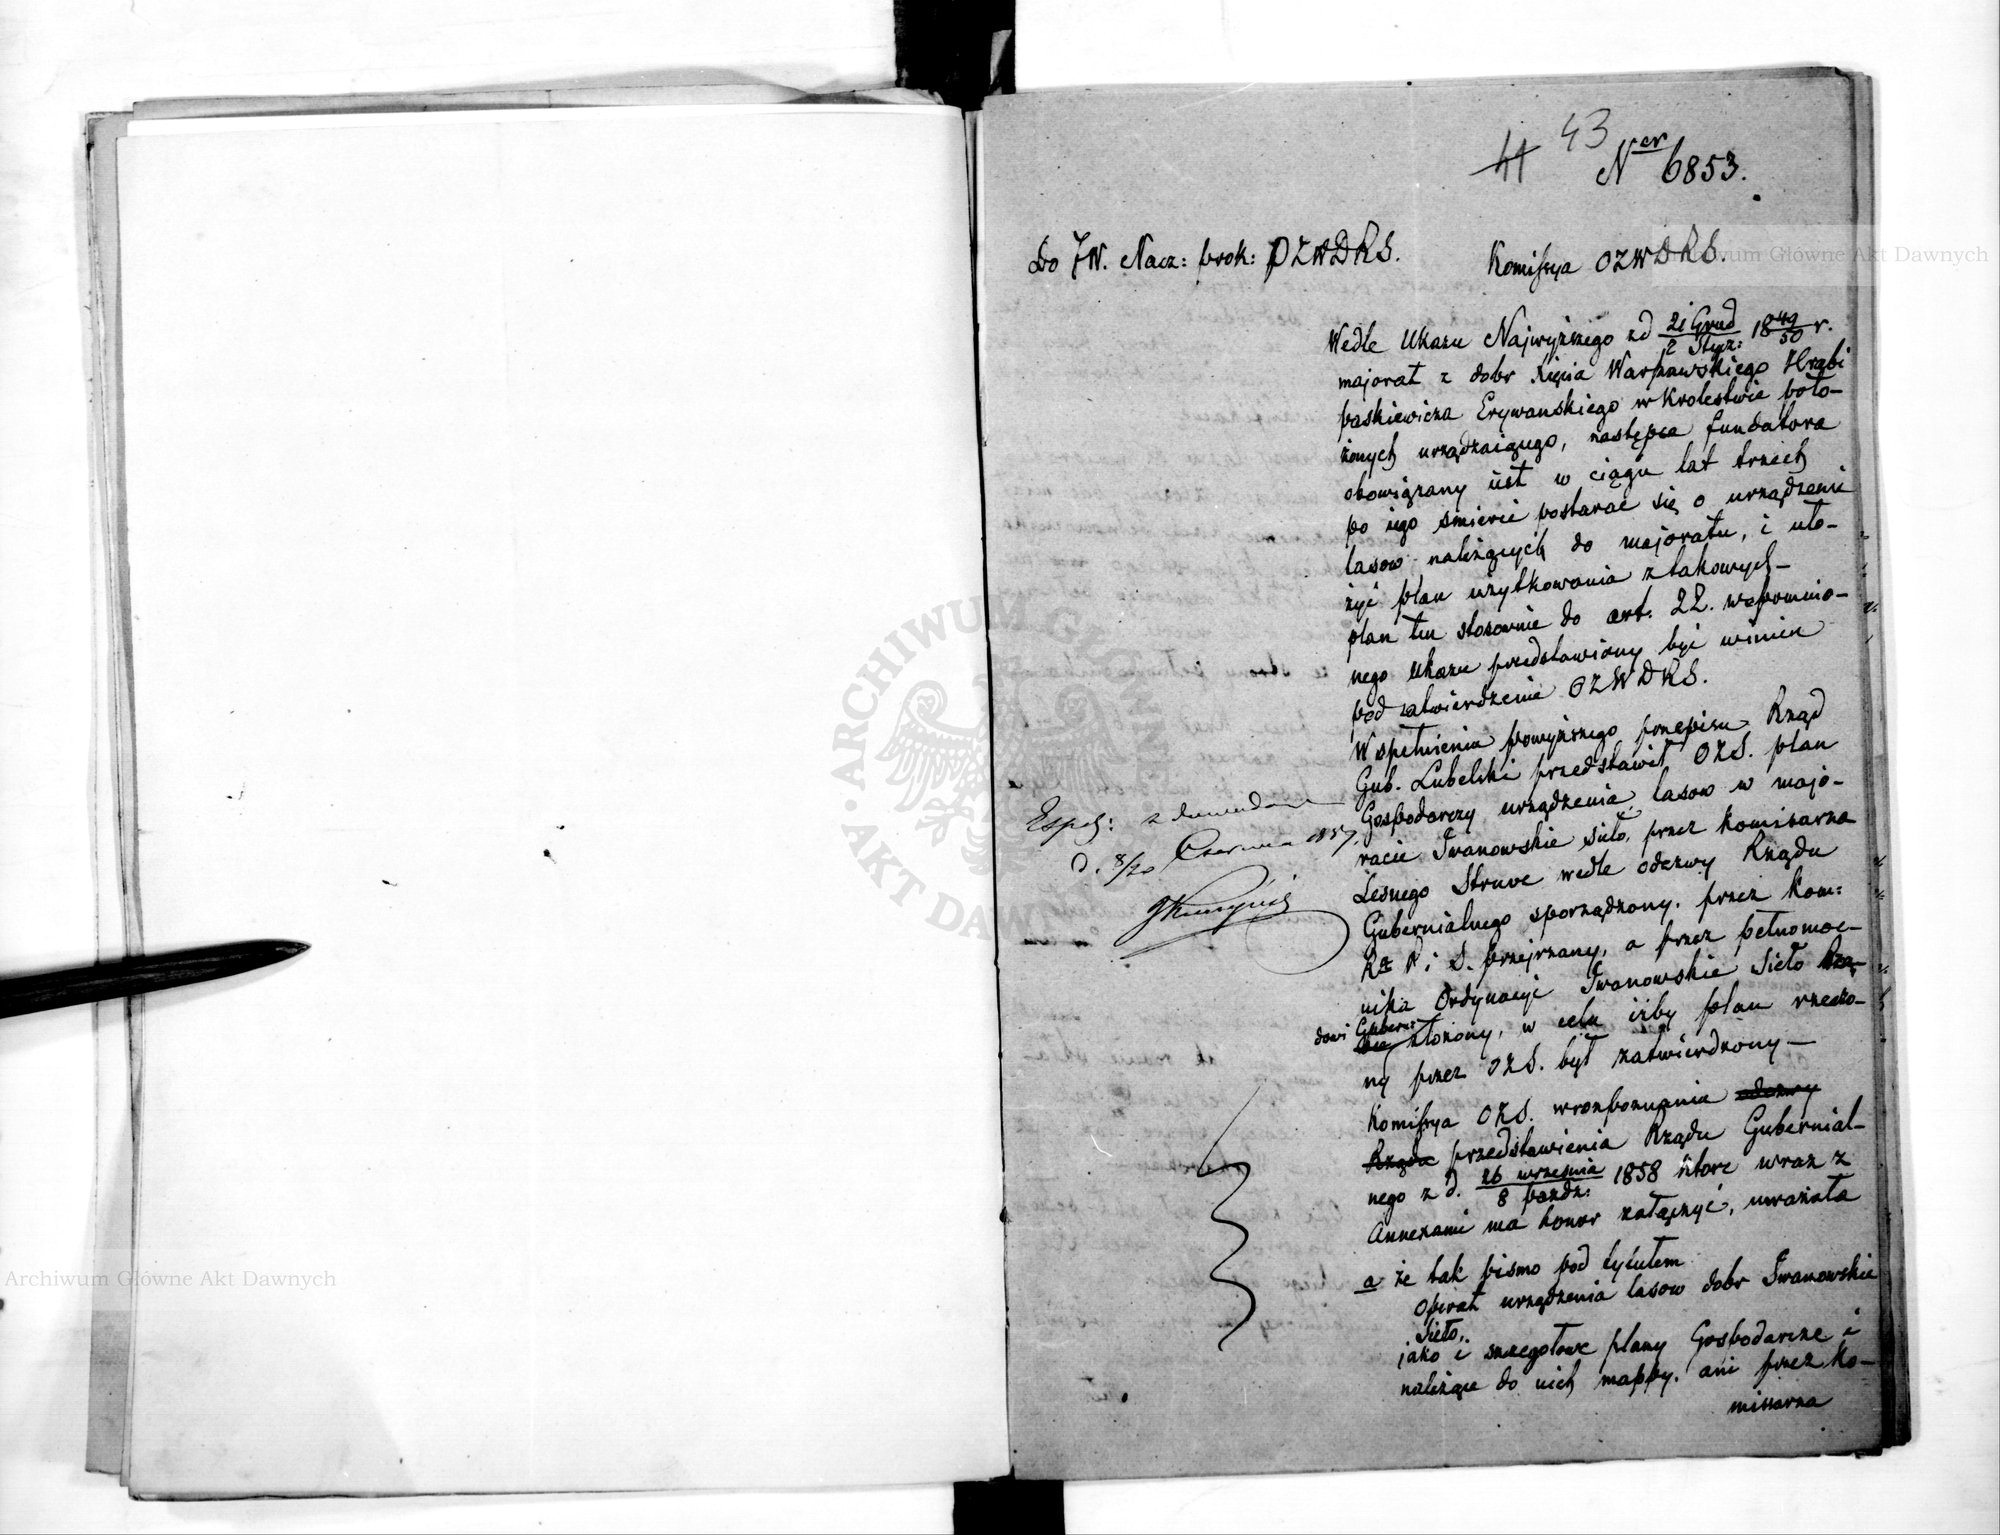 43
41 Ner 6853.
Do JW. Nacz: prok: OZWDRS.
Komissya OZWDRS.
Wedle Ukazu Najwyższego z d 21 Grud / 2 Stycz: 18 49/50 r.
majorat z dobr Xięcia Warszawskiego Hrabi
Paskiewicza Erywanskiego w Krolestwie poło-
żonych urządzaiącego, następca fundatora
obowiązany iest w ciągu lat trzech
po iego smierci postarac się o urządzenie
lasow należących do majoratu, i uło-
żyć plan użytkowania z takowych –
plan ten stosownie do art. 22. wspomnio-
nego Ukazu przedstawiony być winien
pod zatwierdzenie OZWDRS.
W spełnieniu powyższego przepisu Rząd
Gub. Lubelski przedstawił OZS. plan
Gospodarczy urządzenia lasow w majo-
racie Iwanowskie Sieło, przez Komisarza
Leśnego Struve wedle odezwy Rządu
Gubernialnego sporządzony, przez Kom:
Rz P i S. przejrzany, a przez pełnomoc-
nika Ordynacyi Iwanowskie Sieło Rzą-
dowi Gubern: złożony, w celu iżby plan rzeczo-
ny przez OZS. był zatwierdzony –
Expdj: z dowodami
d. 8/20 Czerwca 1859.
Komissya OZS. w rozpoznaniu odezwy
Rządu przedstawienia Rządu Gubernial-
nego z d. 26 września / 8 pazdz: 1858 ktore wraz z
Annexami ma honor załączyć, uważała
a że tak pismo pod tytułem
Operat urządzenia lasow dobr Iwanowskie
Sieło,
jako i szczegołowe plany Gospodarcze i
należące do nich mappy, ani przez Ko-
missarza
ARCHIWUM GŁÓWNE AKT DAWNYCH
Archiwum Główne Akt Dawnych
Archiwum Główne Akt Dawnych